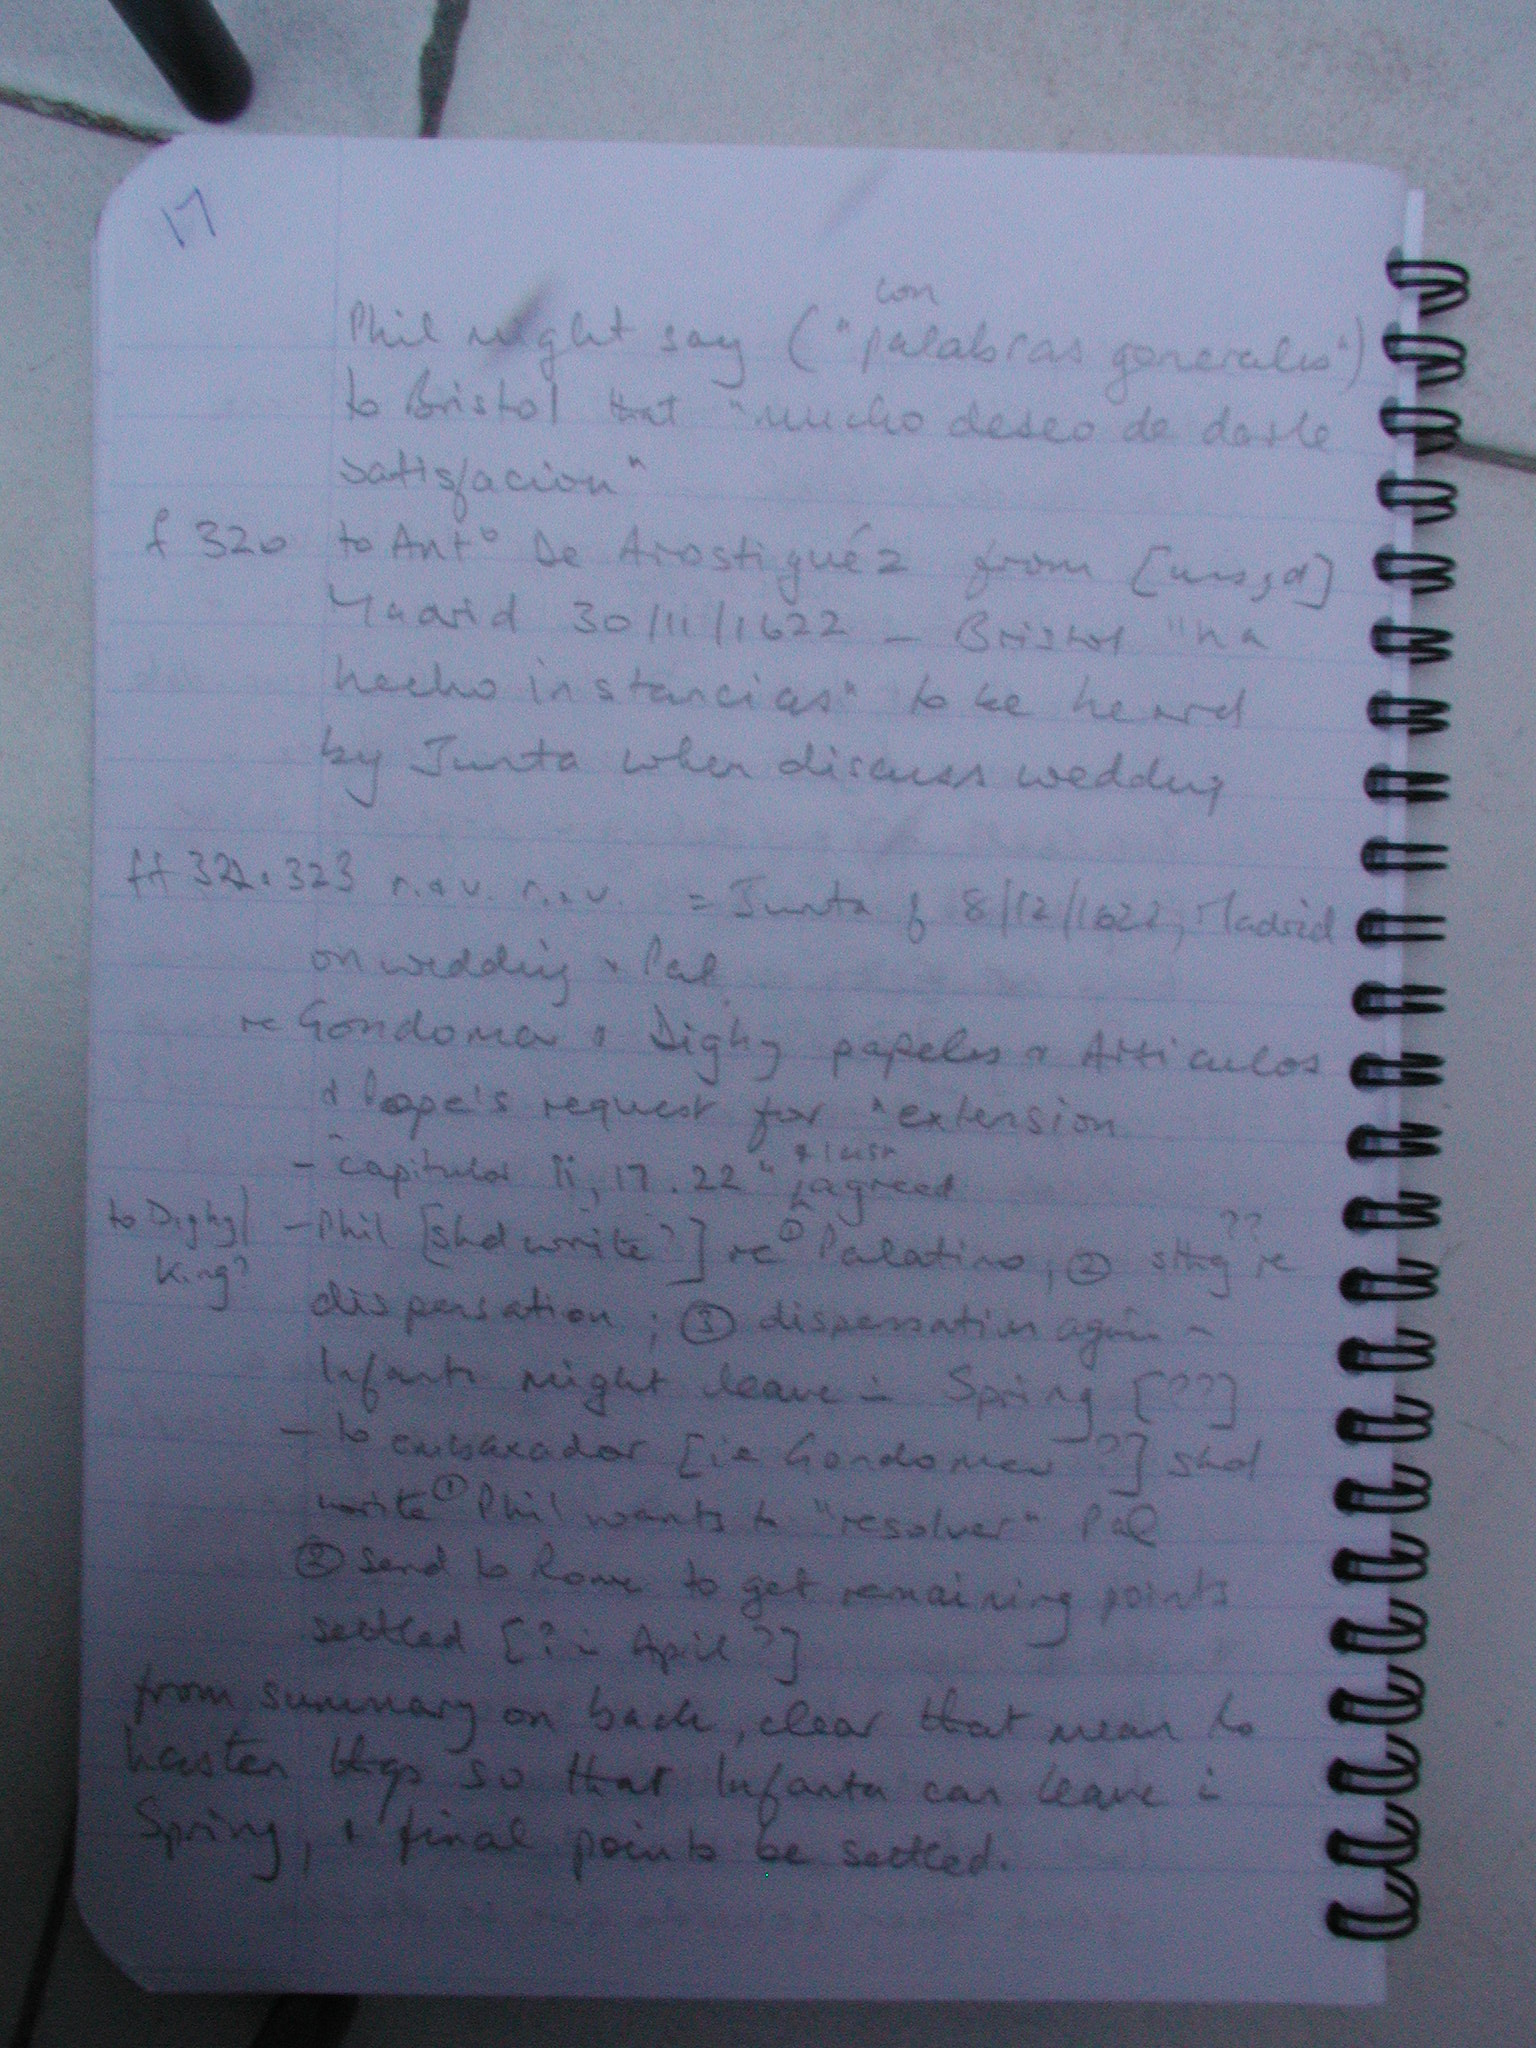 17
con
Phil might say ("palabras generales")
to Bristol that "mucho deseo de darle
satisfacion"
f 320 to Antº De Arostiguéz from
Madrid 30/11/1622 – Bristol "ha
hecho instancias" to be heard
by Junta when discuss wedding
ff 322. 323 r.&v. r.&v. = Junta of 8/12/1622, Madrid
on wedding & Pal
re Gondomar & Digby papeles & Articulos
& Pope's request for "extension
– capitulos 17. 22" agreed
to Digby/ – Phil [shd write?] re ① Palatino, ② sthg ?? re
King? dispensation; ③ dispensation again –
Infanta might leave in Spring [??]
– to embaxador [ie Gondomar?] shd
write ① Phil wants to "resolver" Pal
② send to Rome to get remaining points
settled [? in April?]
from summary on back, clear that mean to
hasten thgs so that Infanta can leave in
Spring, & final points be settled.